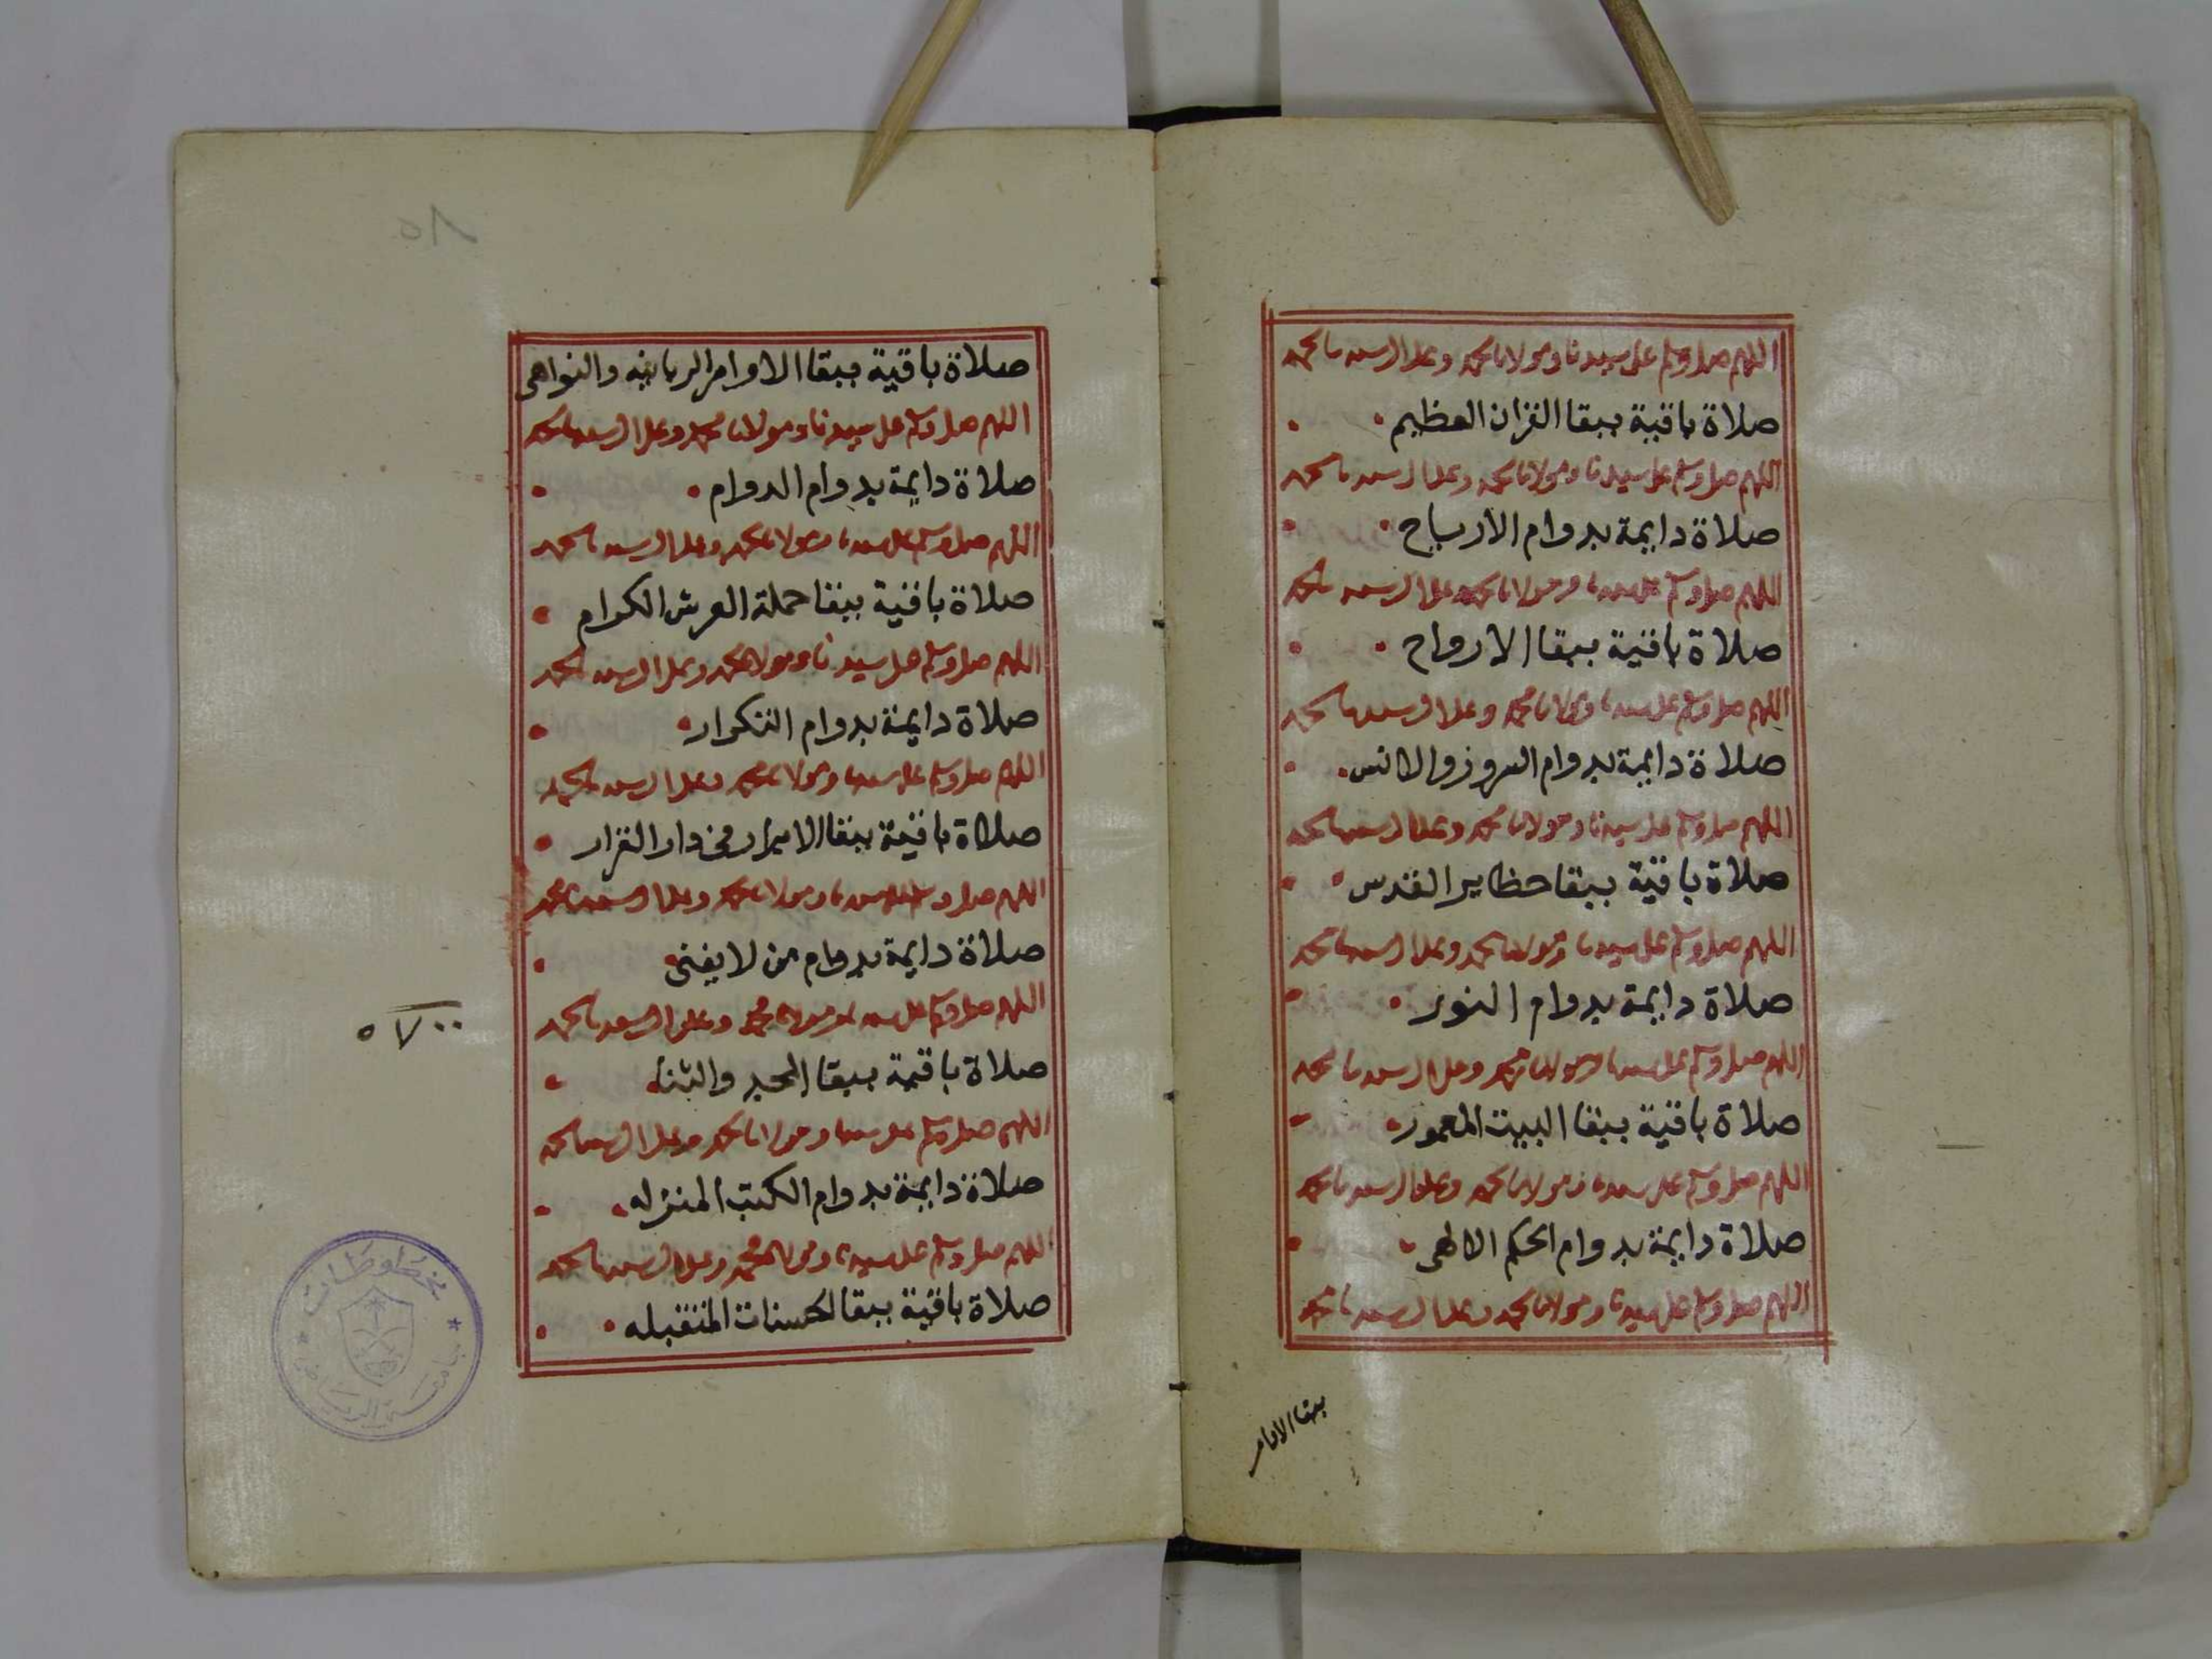 اللهم صل وسلم على سيدنا ومولانا محمد وعلى ال سيدنا محمد
صلاة باقية ببقا القران العظيم
اللهم صل وسلم على سيدنا ومولانا محمد وعلى ال سيدنا محمد
صلاة دايمة بدوام الارباح
اللهم صل وسلم على سيدنا ومولانا محمد وعلى ال سيدنا محمد
صلاة باقية ببقا الارواح
اللهم صل وسلم على سيدنا ومولانا محمد وعلى ال سيدنا محمد
صلاة دايمة بدوام والانس
اللهم صل وسلم على سيدنا ومولانا محمد وعلى ال سيدنا محمد
صلاة باقية ببقا حظاير القدس
اللهم صل وسلم على سيدنا ومولانا محمد وعلى ال سيدنا محمد
صلاة دايمة بدوام النور
اللهم صل وسلم على سيدنا ومولانا محمد وعلى ال سيدنا محمد
صلاة باقية ببقا البيت المعمور
اللهم صل وسلم على سيدنا ومولانا محمد وعلى ال سيدنا محمد
صلاة دايمة بدوام الحكم الالهى
اللهم صل وسلم على سيدنا ومولانا محمد وعلى ال سيدنا محمد
ببقا الاوامر
٨٥
صلاة باقية ببقا الاوامر الربانيه والنواهى
اللهم صل وسلم على سيدنا ومولانا محمد وعلى ال سيدنا محمد
صلاة دايمة بدوام الدوام
اللهم صل وسلم على سيدنا ومولانا محمد وعلى ال سيدنا محمد
صلاة باقية ببقا حملة العرش الكرام
اللهم صل وسلم على سيدنا ومولانا محمد وعلى ال سيدنا محمد
صلاة دايمة بدوام التكرار
اللهم صل وسلم على سيدنا ومولانا محمد وعلى ال سيدنا محمد
صلاة باقية ببقا الابرار فى دار القرار
اللهم صل وسلم على سيدنا ومولانا محمد وعلى ال سيدنا محمد
صلاة دايمة بدوام من لا يفنى
اللهم صل وسلم على سيدنا ومولانا محمد وعلى ال سيدنا محمد
صلاة باقية ببقا المجد والثنا
اللهم صل وسلم على سيدنا ومولانا محمد وعلى ال سيدنا محمد
صلاة دايمة بدوام الكتب المنزله
اللهم صل وسلم على سيدنا ومولانا محمد وعلى ال سيدنا محمد
صلاة باقية ببقا الحسنات المتقبله
٥٧٠٠
مخطوطات
جامعة الرياض